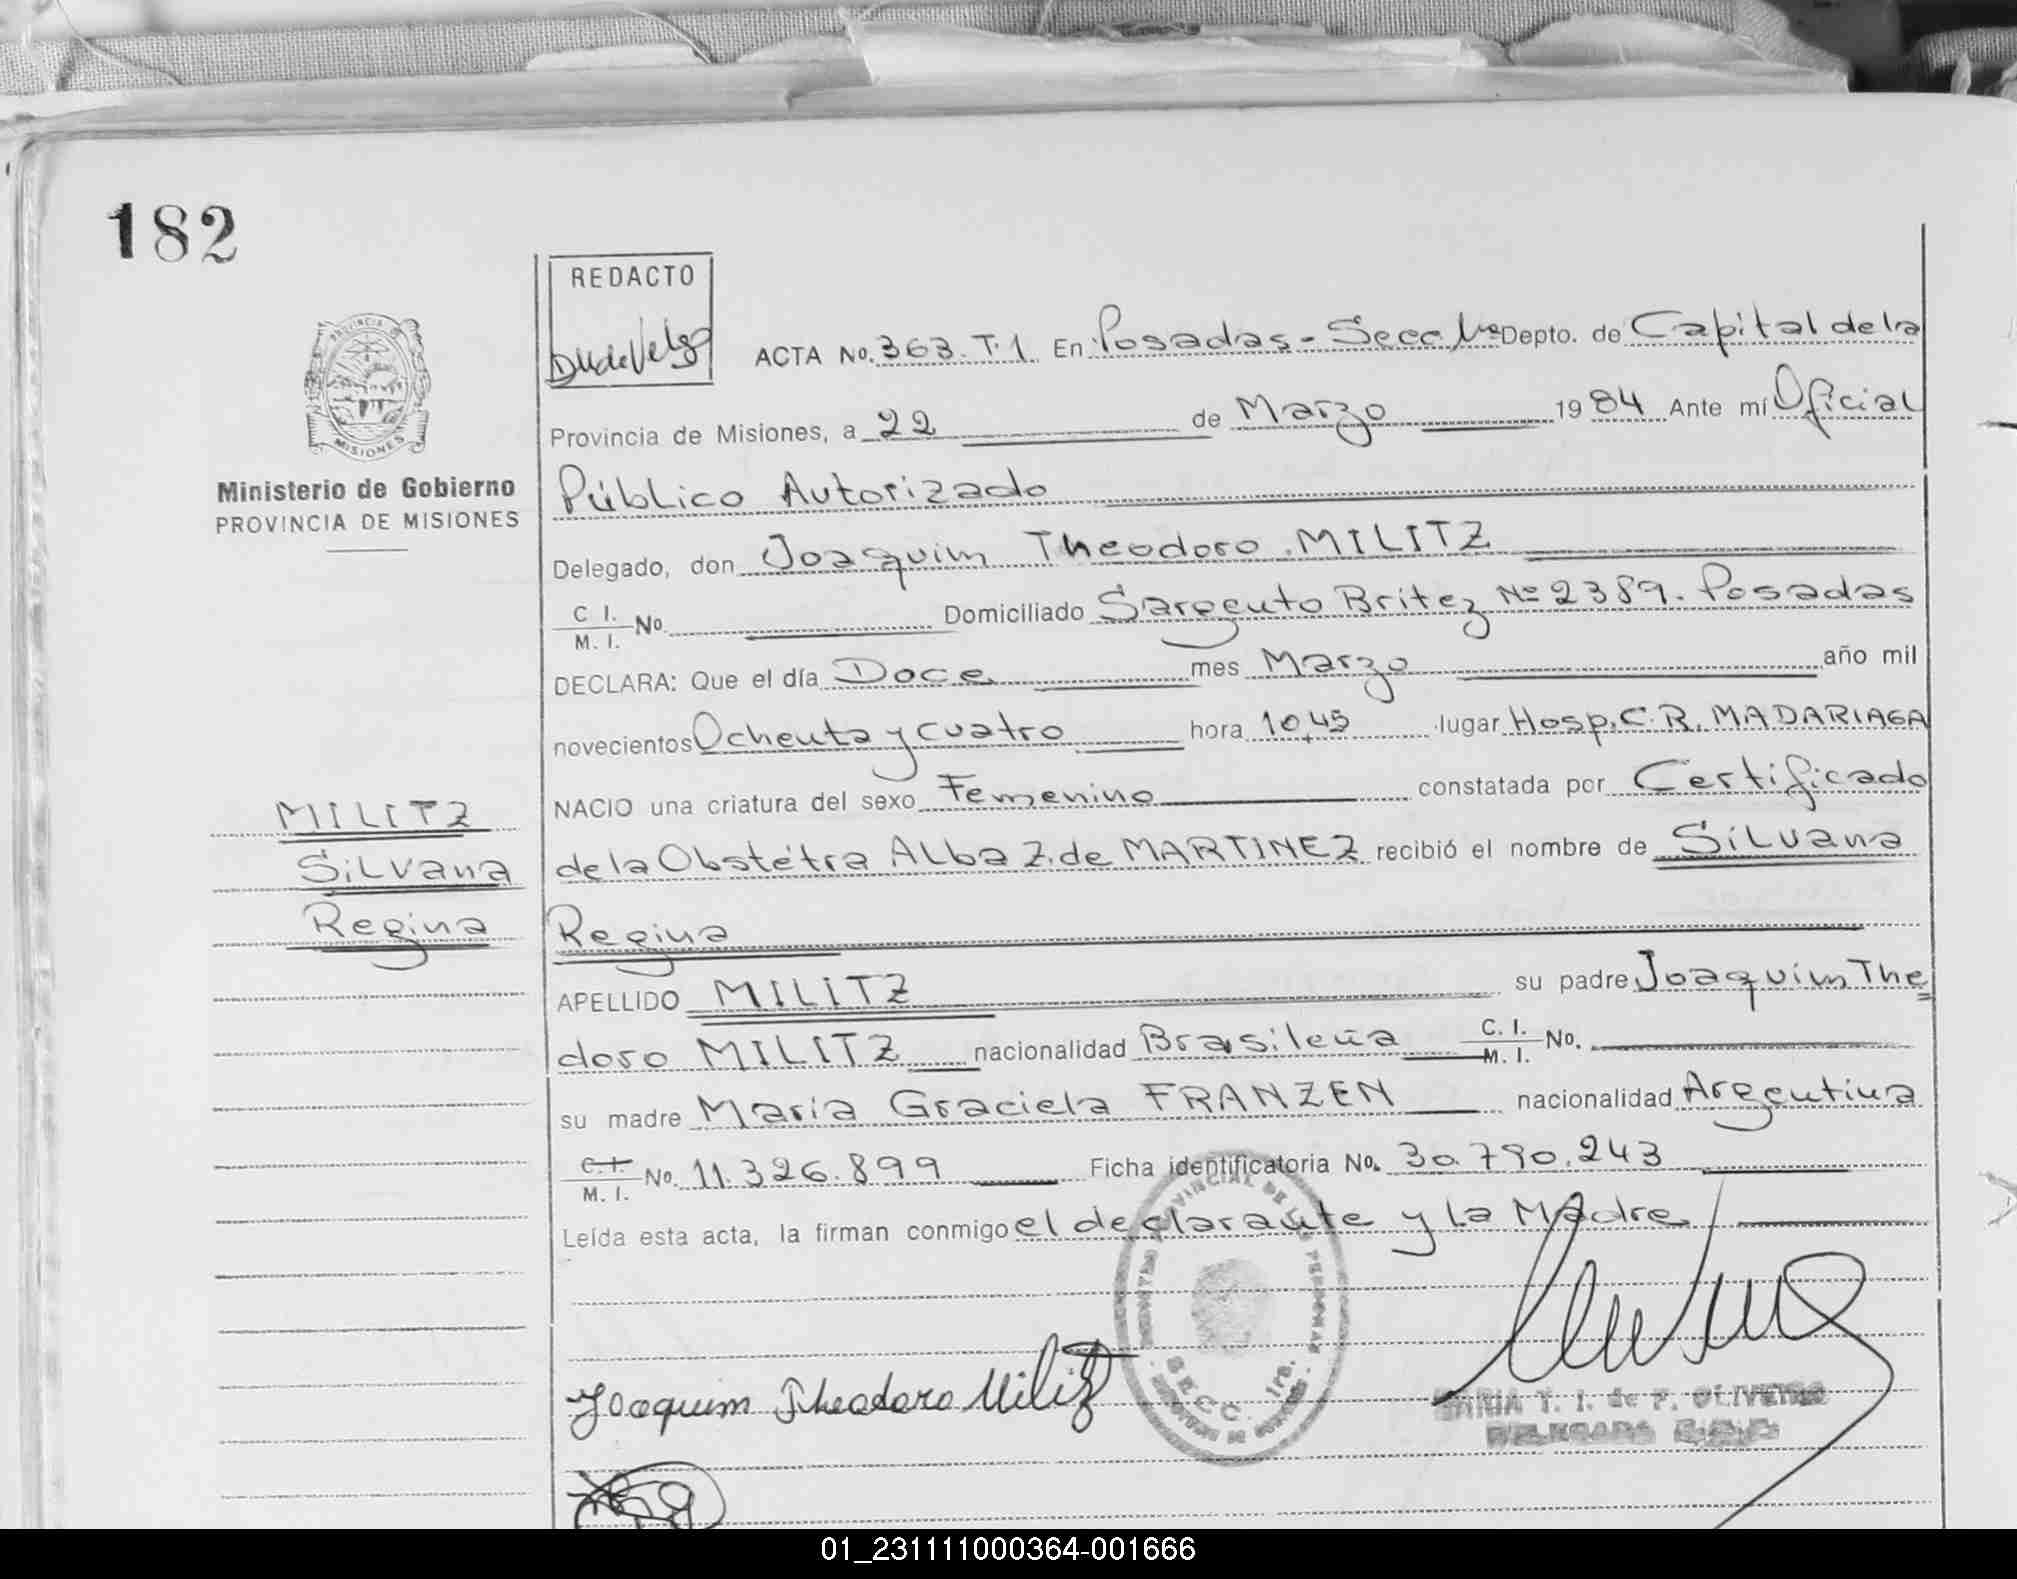 182
REDACTO
PROVINCIA DE
MISIONES
ACTA No. 363. T. 1 En Posadas - Secc. 1ra Depto. de Capital de la
Provincia de Misiones, a 22 de Marzo 1984 Ante mí Oficial
Ministerio de Gobierno
PROVINCIA DE MISIONES
Público Autorizado
Delegado, don Joaquim Theodoro MILITZ
C I. M. I. No. Domiciliado Sargento Britez Nº 2389. Posadas
DECLARA: Que el día Doce mes Marzo año mil
novecientos Ochenta y cuatro hora 10,45 lugar Hosp. C. R. MADARIAGA
MILITZ
NACIO una criatura del sexo Femenino constatada por Certificado
Silvana
de la Obstétra Alba Z. de MARTINEZ recibió el nombre de Silvana
Regina
Regina
APELLIDO MILITZ su padre Joaquim The
doro MILITZ nacionalidad Brasileña C. I. M. I. No.
su madre María Graciela FRANZEN nacionalidad Argentina
C. I. M. I. No. 11.326.899 Ficha identificatoria No. 30.790.243
Leída esta acta, la firman conmigo el declarante y la Madre
Joaquim Theodoro Militz
SECC. 1ra.
MARIA T. I. de F. OLIVEIRA
DELEGADA
01_231111000364-001666